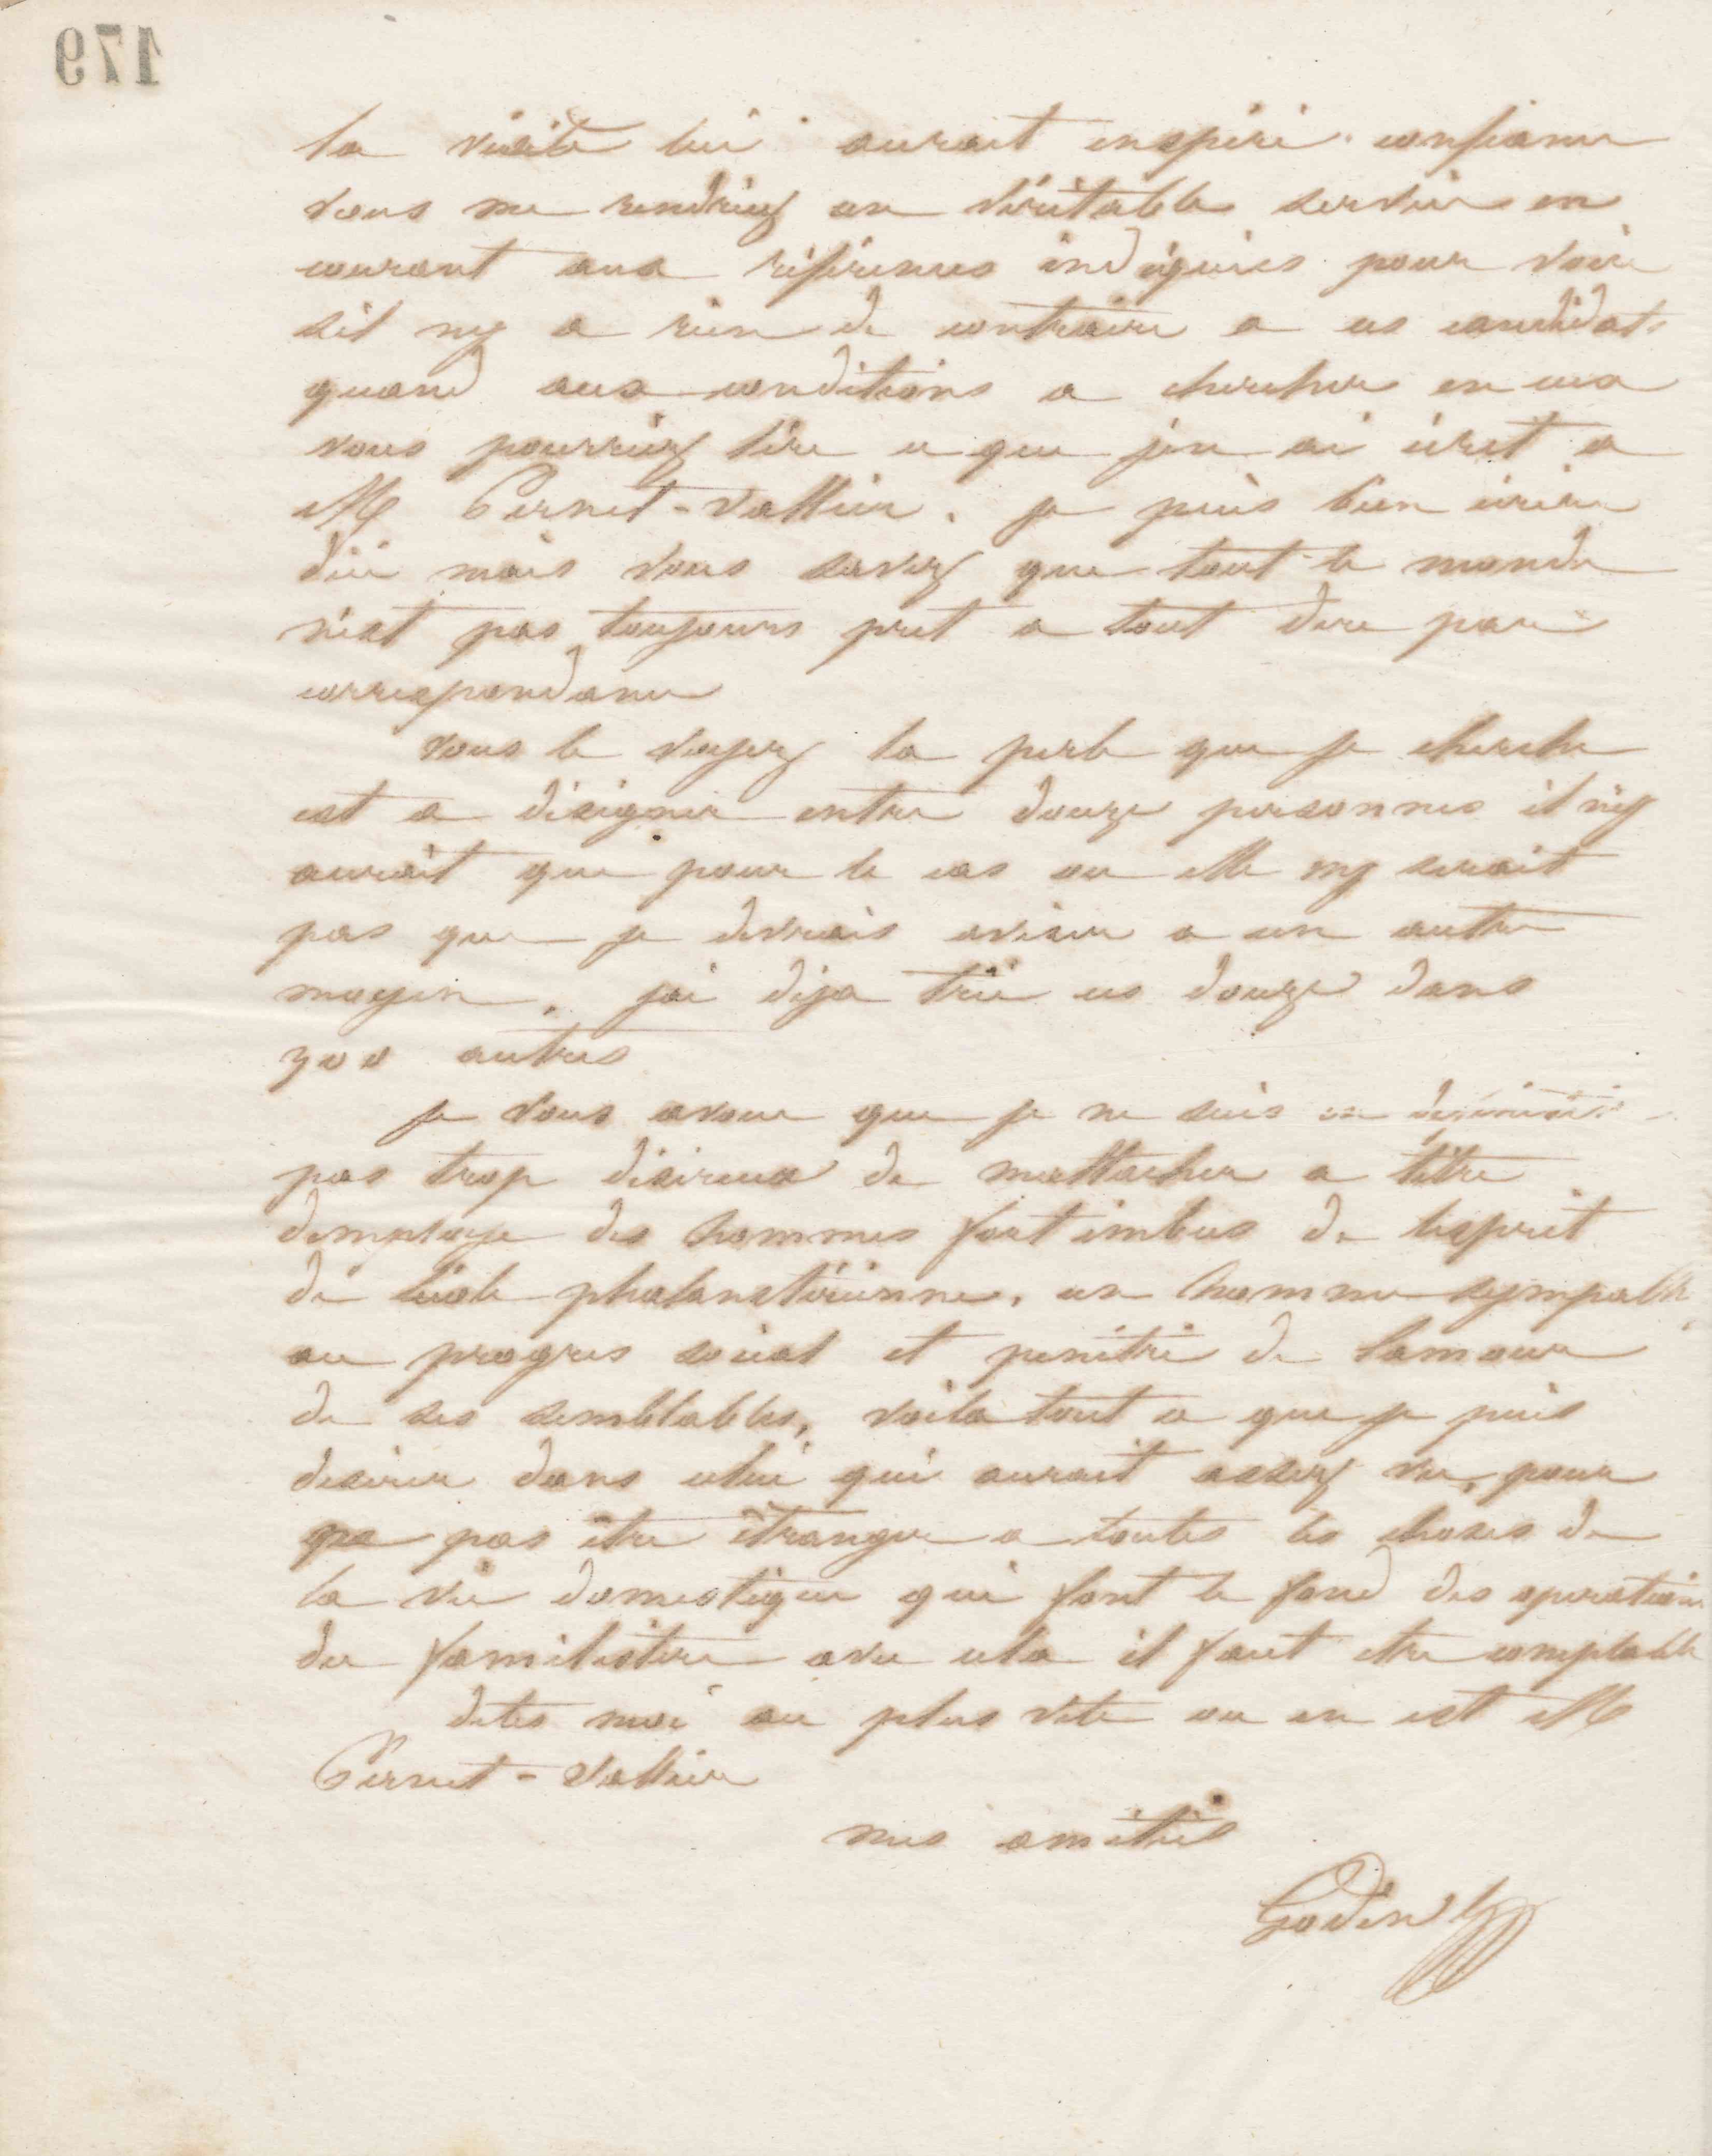 179
la visite lui aurait inspiré confiance
vous me rendriez un véritable service en
courant aux références indiquées pour voir
sil ny a rien de contraire a ces candidats
quand aux conditions a chercher en eux
vous pourriez lire ce que jen ai écrit a
M Pernet-Vallier. je puis bien écrire
dici mais vous savez que tout le monde
n'est pas toujours pret a tout dire par
correspondance
vous le voyez la perle que je cherche
est a désigner entre douze personnes il n'y
aurait que pour le cas ou elle ny serait
pas que je devrais aviser a un autre
moyen. jai déja trié ces douze dans
300 autres
je vous avoue que je ne suis
pas trop désireux de mattacher a titre
demploye des hommes fort imbus de lesprit
de lécole phalanstérienne, un homme sympath
au progres social et penétré de lamour
de ses semblables, voila tout ce que je puis
desirer dans celui qui aurait assez vu, pour
ne pas être étranger a toutes les choses de
la vie domestique qui font le fond des operations
du familistere avec cela il faut etre comptable
dites moi au plus vite ou en est M
Pernet-Vallier
mes amitiés
Godin